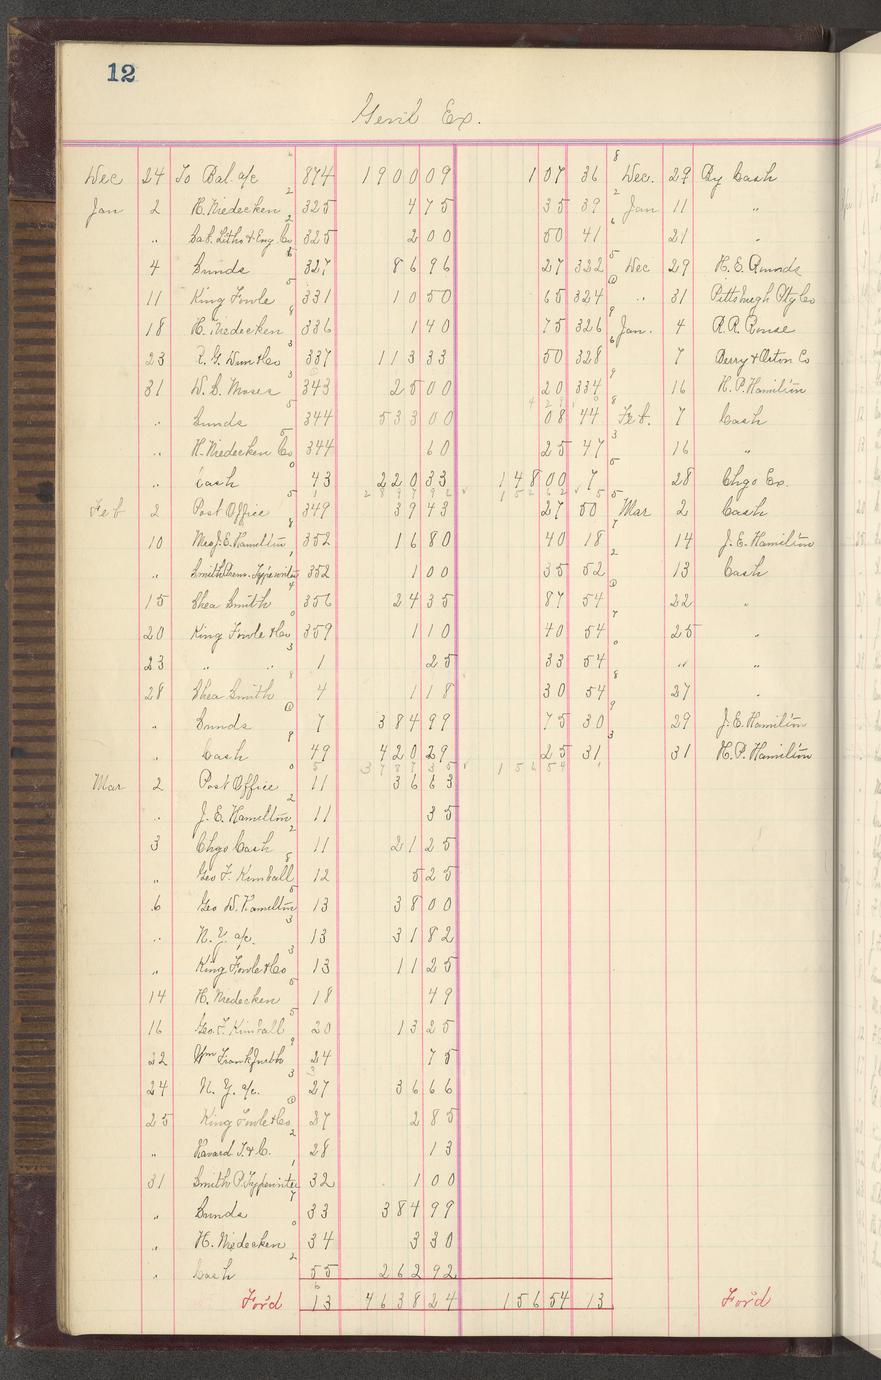 12
Genl Ex.
Dec 24 To Bal. a/c 874 1900 09 1 07 36 Dec. 29 By Cash
Jan 2 H. Niedecken 325 4 75 35 39 Jan 11 "
" & Eng. Co 325 2 00 50 41 21 "
4 Sunds 327 86 96 27 322 Dec 29 H. E. Rounds
11 King Fowle 331 10 50 65 324 " 31 Pittsburgh Co
18 H. Niedecken 336 1 40 75 326 Jan. 4 R. R. Rouse
23 R. G. Dun & Co 337 113 33 50 328 7 Berry & Orton Co
31 W. S. Moses 343 25 00 20 334 16 H. P. Hamilton
" Sunds 344 533 00 08 44 Feb. 7 Cash
" H. Niedecken Co 344 60 25 47 16 "
" Cash 43 220 33 148 00 7 28 Chgo Ex.
Feb 2 Post Office 349 39 43 27 50 Mar 2 Cash
10 Mrs J. E. Hamilton 352 16 80 40 18 14 J. E. Hamilton
" Smith Prem. Typewriter 352 1 00 35 52 13 Cash
15 Shea Smith 356 24 35 87 54 22 "
20 King Fowle & Co 359 1 10 40 54 25 "
23 " " 1 25 33 54 " "
28 Shea Smith 4 1 18 30 54 27 "
" Sunds 7 384 99 75 30 29 J. E. Hamilton
" Cash 49 420 29 25 31 31 H. P. Hamilton
Mar 2 Post Office 11 36 63
" J. E. Hamilton 11 35
3 Chgo Cash 11 21 25
" Geo F. Kimball 12 5 25
6 Geo W. Hamilton 13 38 00
" N. Y. a/c. 13 31 82
" King Fowle & Co 13 11 25
14 H. Niedecken 18 49
16 Geo. F. Kimball 20 13 25
22 Wm Frankfurth 24 75
24 N. Y. a/c. 27 36 66
25 King Fowle & Co 27 2 85
" 28 13
31 Smith P. Typewriter 32 1 00
" Sunds 33 384 99
" H. Niedecken 34 3 30
" Cash 55 262 92
For'd 13 4638 24 156 54 13 For'd